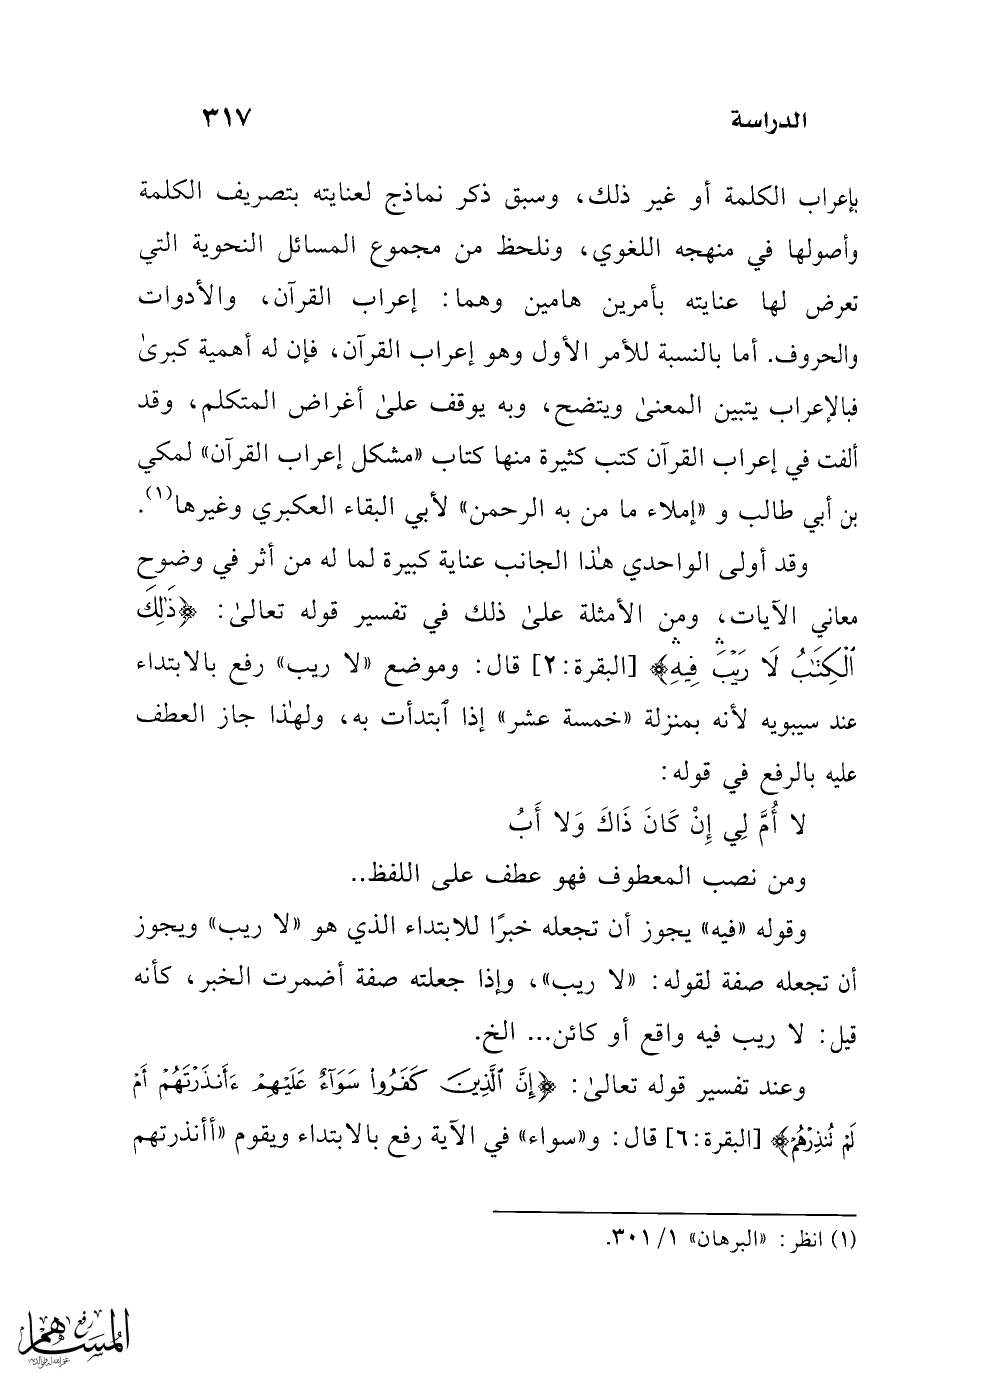 الدراسة ٣١٧
بإعراب الكلمة أو غير ذلك، وسبق ذكر نماذج لعنايته بتصريف الكلمة
وأصولها في منهجه اللغوي، ونلحظ من مجموع المسائل النحوية التي
تعرض لها عنايته بأمرين هامين وهما: إعراب القرآن، والأدوات
والحروف. أما بالنسبة للأمر الأول وهو إعراب القرآن، فإن له أهمية كبرىٰ
فبالإعراب يتبين المعنىٰ ويتضح، وبه يوقف علىٰ أغراض المتكلم، وقد
ألفت في إعراب القرآن كتب كثيرة منها كتاب «مشكل إعراب القرآن» لمكي
بن أبي طالب و «إملاء ما من به الرحمن» لأبي البقاء العكبري وغيرها(١).
وقد أولى الواحدي هٰذا الجانب عناية كبيرة لما له من أثر في وضوح
معاني الآيات، ومن الأمثلة علىٰ ذلك في تفسير قوله تعالىٰ: ﴿ذَٰلِكَ
ٱلْكِتَٰبُ لَا رَيْبَۛ فِيهِۛ﴾ [البقرة:٢] قال: وموضع «لا ريب» رفع بالابتداء
عند سيبويه لأنه بمنزلة «خمسة عشر» إذا ٱبتدأت به، ولهٰذا جاز العطف
عليه بالرفع في قوله:
لا أُمَّ لِي إِنْ كَانَ ذَاكَ وَلا أَبُ
ومن نصب المعطوف فهو عطف على اللفظ..
وقوله «فيه» يجوز أن تجعله خبرًا للابتداء الذي هو «لا ريب» ويجوز
أن تجعله صفة لقوله: «لا ريب»، وإذا جعلته صفة أضمرت الخبر، كأنه
قيل: لا ريب فيه واقع أو كائن... الخ.
وعند تفسير قوله تعالىٰ: ﴿إِنَّ ٱلَّذِينَ كَفَرُوا۟ سَوَآءٌ عَلَيْهِمْ ءَأَنذَرْتَهُمْ أَمْ
لَمْ تُنذِرْهُمْ﴾ [البقرة:٦] قال: و«سواء» في الآية رفع بالابتداء ويقوم «أأنذرتهم
(١) انظر: «البرهان» ١/ ٣٠١.
رفع
المساهم